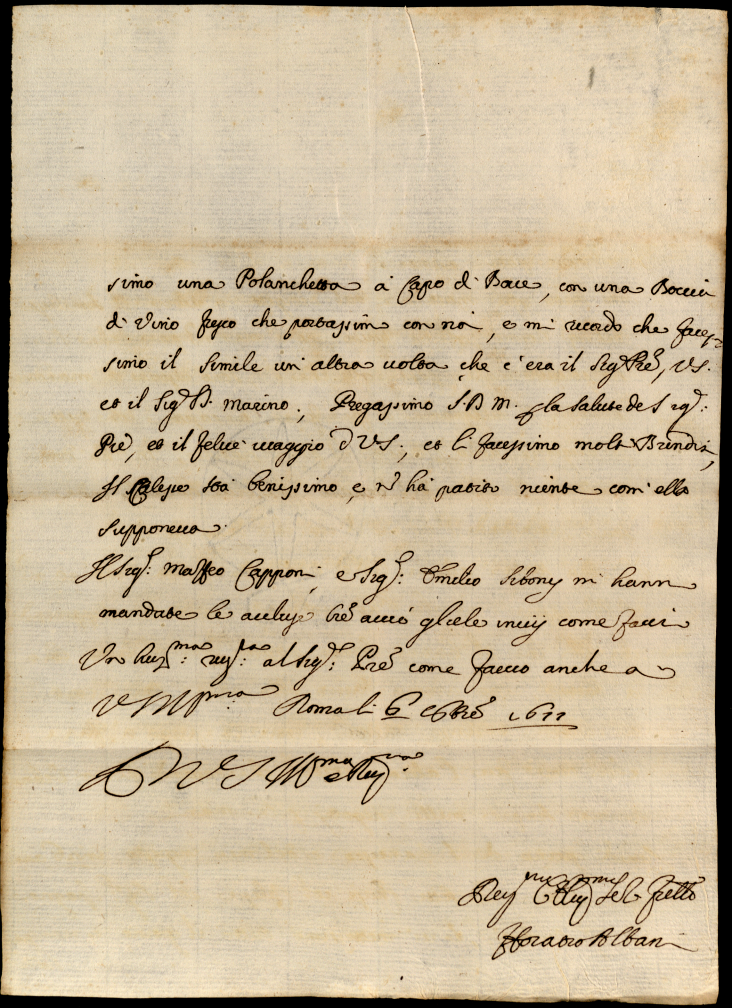 simo una Polanchetta à Capo di Bove, con una Boccia
di Vino fresco che portassim con noi, e mi ricordo che faces-
simo il simile un' altra volta che c'era il Sigr Pre, VS.
et il Sigr D. Marino; Pregassimo S. D. M. p la salute del Sigr:
Pre, et il felice viaggio d VS:, et li facessimo molti Brindisi,
Il Calesse sta benissimo, e no hà patito niente com' ella
supponeva.
Il Sigr: Maffeo Capponi, e Sigr: Emilio mi hann
mandate le accluse lre acciò gliele invij come facci
Un hum.ma riv.za: al Sigr: Pre come faccio anche a
VS Ill.ma Roma li 6 1677
D VS Ill.ma e Rev.ma
fratello
Horatio Albani